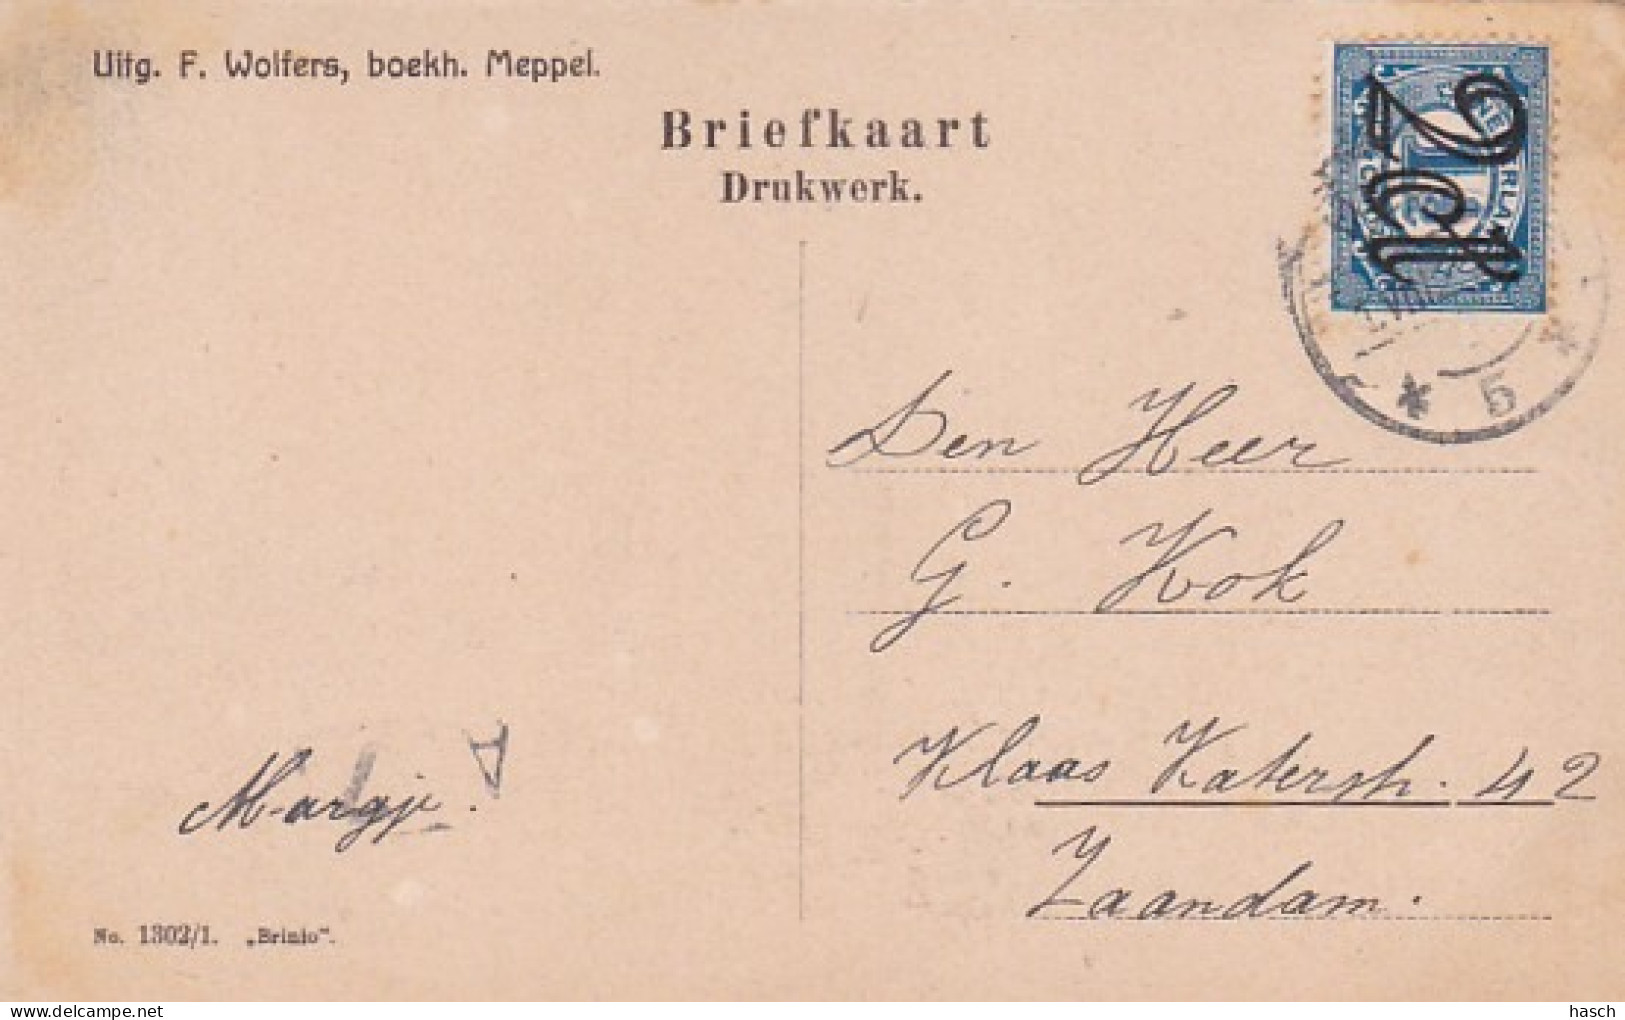 Uitg. F. Wolfers, boekh. Meppel.
Briefkaart
Drukwerk.
2 ct
5
Den Heer
G. Kok
Klaas Katerstr. 42
Zaandam.
Margje.
A
No. 1302/1. „Brinio".
hasch
delcampe.net